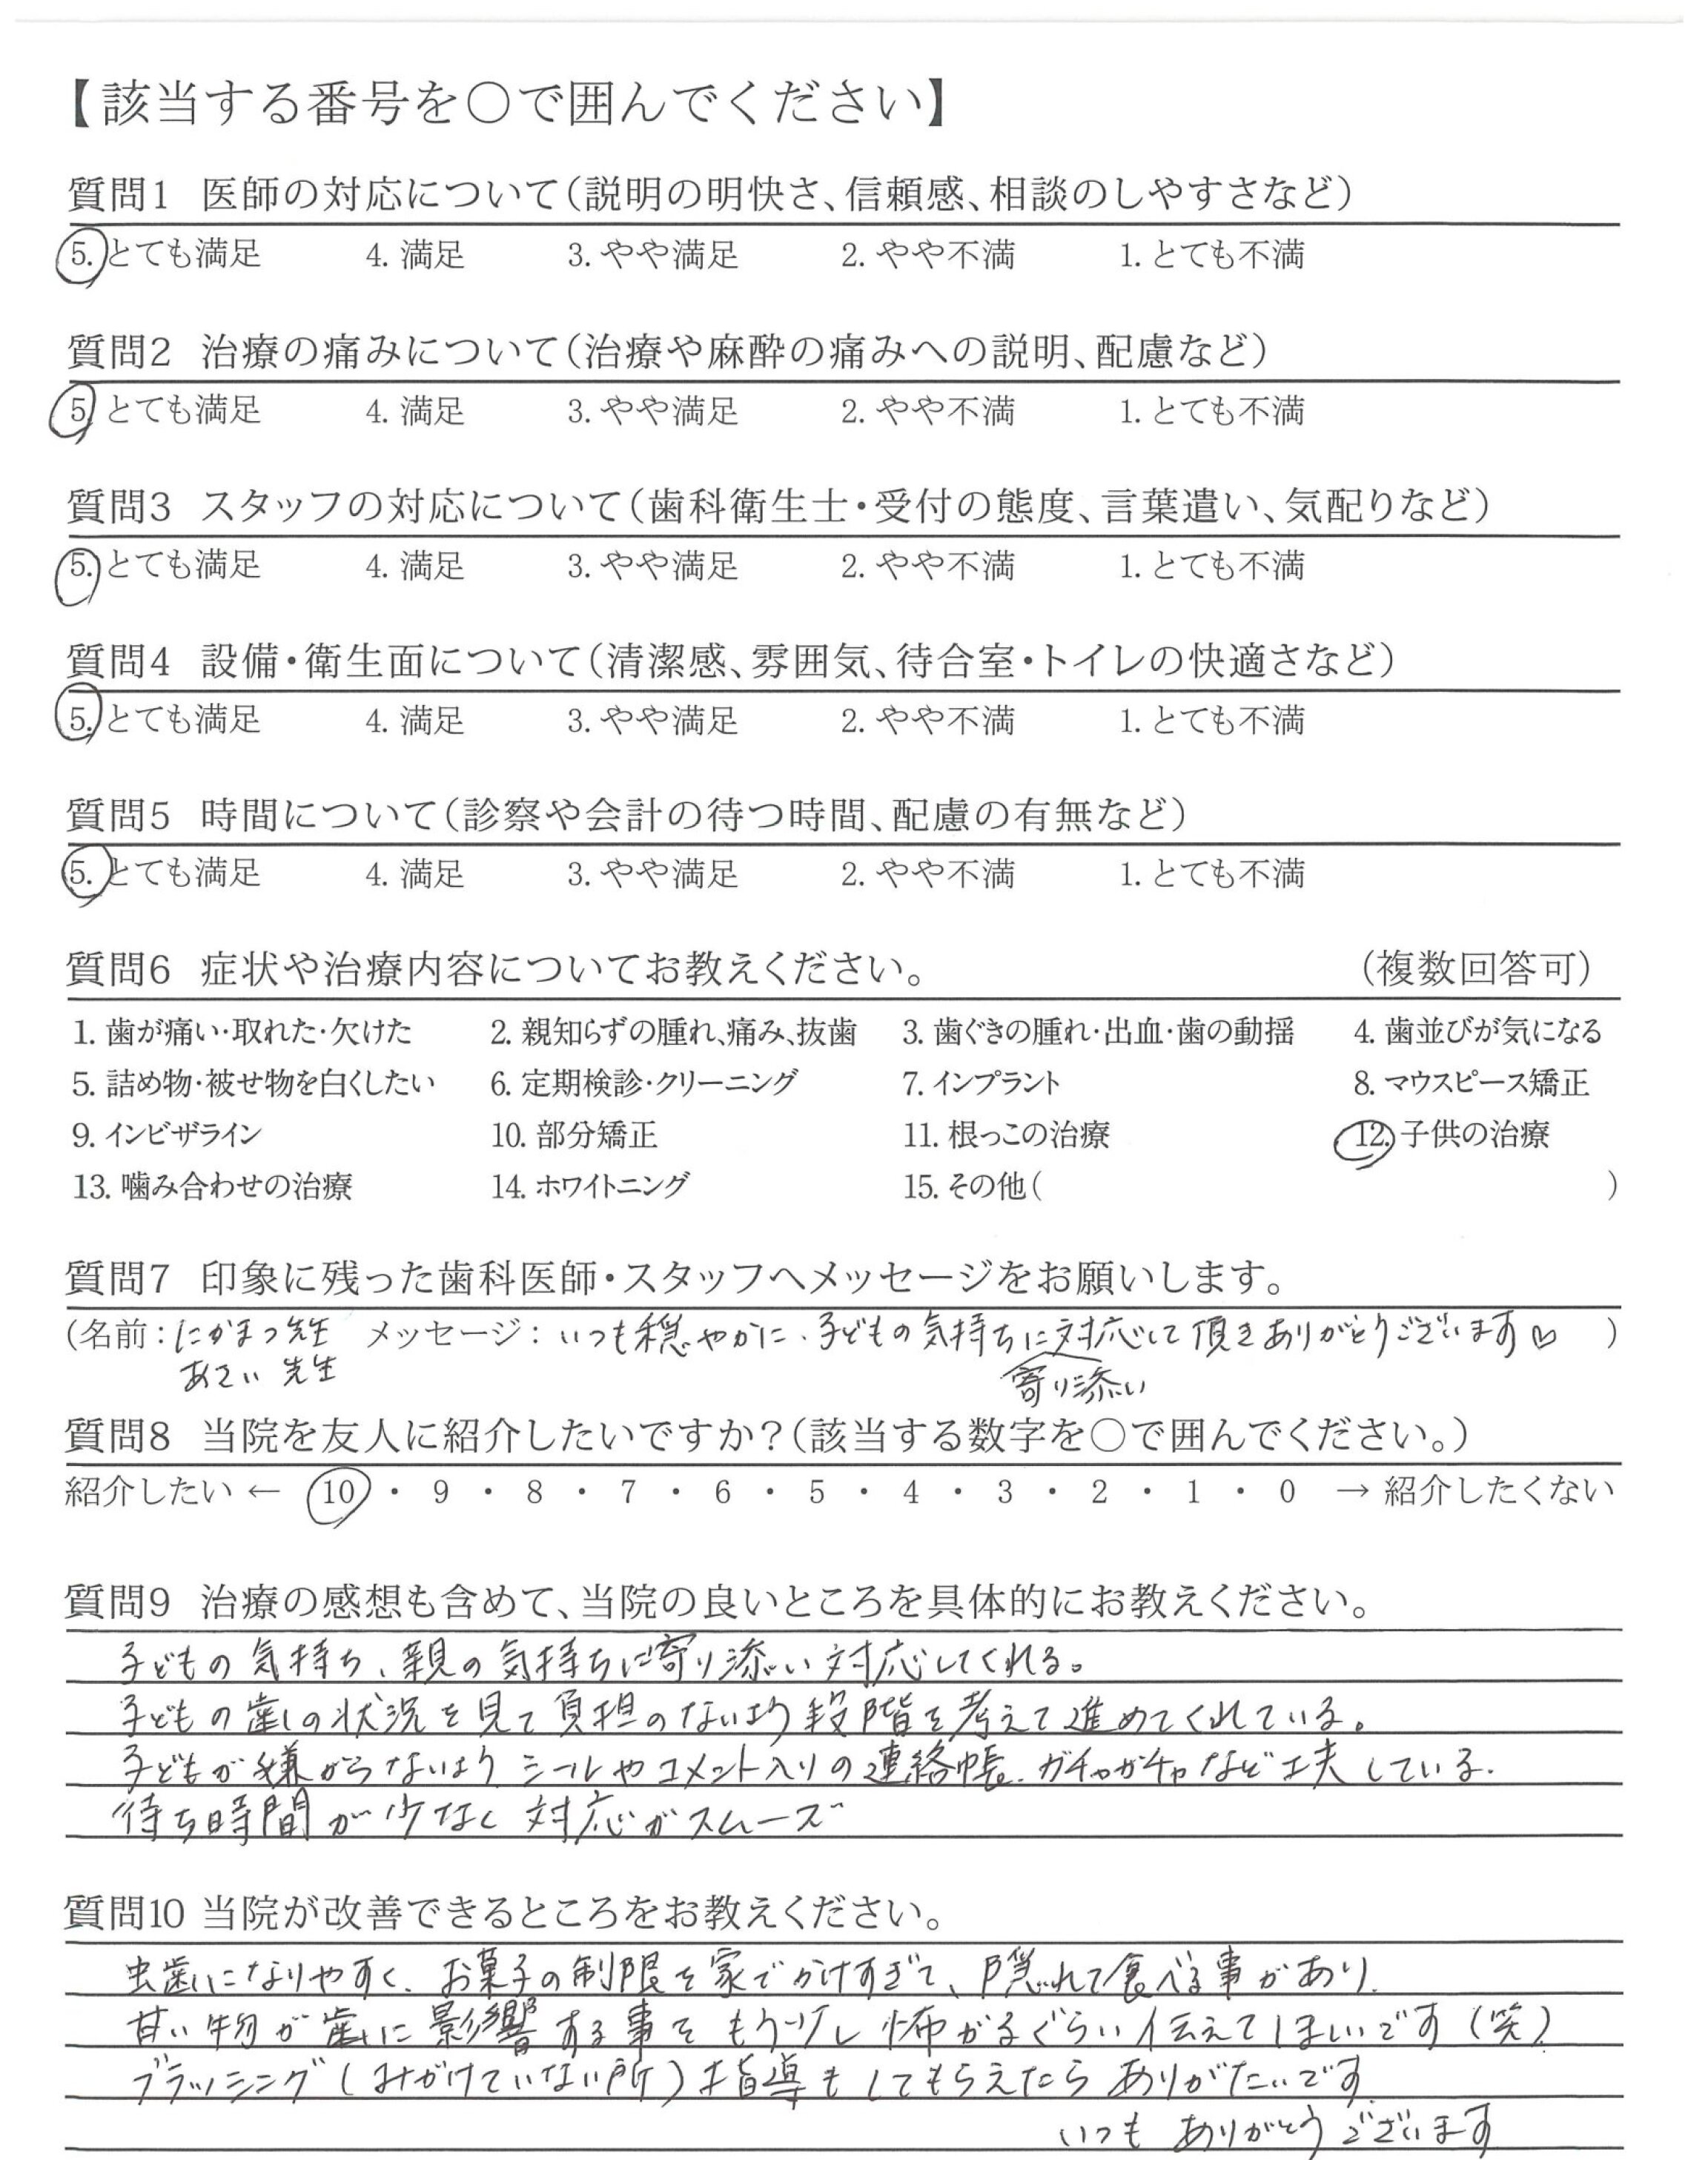 【該当する番号を○で囲んでください】
質問1 医師の対応について(説明の明快さ、信頼感、相談のしやすさなど)
5. とても満足 4. 満足 3. やや満足 2. やや不満 1. とても不満
質問2 治療の痛みについて(治療や麻酔の痛みへの説明、配慮など)
5. とても満足 4. 満足 3. やや満足 2. やや不満 1. とても不満
質問3 スタッフの対応について(歯科衛生士・受付の態度、言葉遣い、気配りなど)
5. とても満足 4. 満足 3. やや満足 2. やや不満 1. とても不満
質問4 設備・衛生面について(清潔感、雰囲気、待合室・トイレの快適さなど)
5. とても満足 4. 満足 3. やや満足 2. やや不満 1. とても不満
質問5 時間について(診察や会計の待つ時間、配慮の有無など)
5. とても満足 4. 満足 3. やや満足 2. やや不満 1. とても不満
質問6 症状や治療内容についてお教えください。 (複数回答可)
1. 歯が痛い・取れた・欠けた 2. 親知らずの腫れ、痛み、抜歯 3. 歯ぐきの腫れ・出血・歯の動揺 4. 歯並びが気になる
5. 詰め物・被せ物を白くしたい 6. 定期検診・クリーニング 7. インプラント 8. マウスピース矯正
9. インビザライン 10. 部分矯正 11. 根っこの治療 12. 子供の治療
13. 噛み合わせの治療 14. ホワイトニング 15. その他( )
質問7 印象に残った歯科医師・スタッフへメッセージをお願いします。
(名前:にかまつ先生 メッセージ:いつも穏やかに、子どもの気持ちに対応して頂きありがとうございます♡ )
あさい 先生 寄り添い
質問8 当院を友人に紹介したいですか?(該当する数字を○で囲んでください。)
紹介したい ← 10 ・ 9 ・ 8 ・ 7 ・ 6 ・ 5 ・ 4 ・ 3 ・ 2 ・ 1 ・ 0 → 紹介したくない
質問9 治療の感想も含めて、当院の良いところを具体的にお教えください。
子どもの気持ち、親の気持ちに寄り添い対応してくれる。
子どもの歯の状況を見て負担のないよう段階を考えて進めてくれている。
子どもが嫌がらないようシールやコメント入りの連絡帳、ガチャガチャなど工夫している。
待ち時間が少なく対応がスムーズ
質問10 当院が改善できるところをお教えください。
虫歯になりやすく、お菓子の制限を家でかけすぎて、隠れて食べる事があり、
甘い物が歯に影響する事をもう少し怖がるぐらい伝えてほしいです(笑)
ブラッシング(みがけていない所)指導もしてもらえたらありがたいです
いつも ありがとうございます